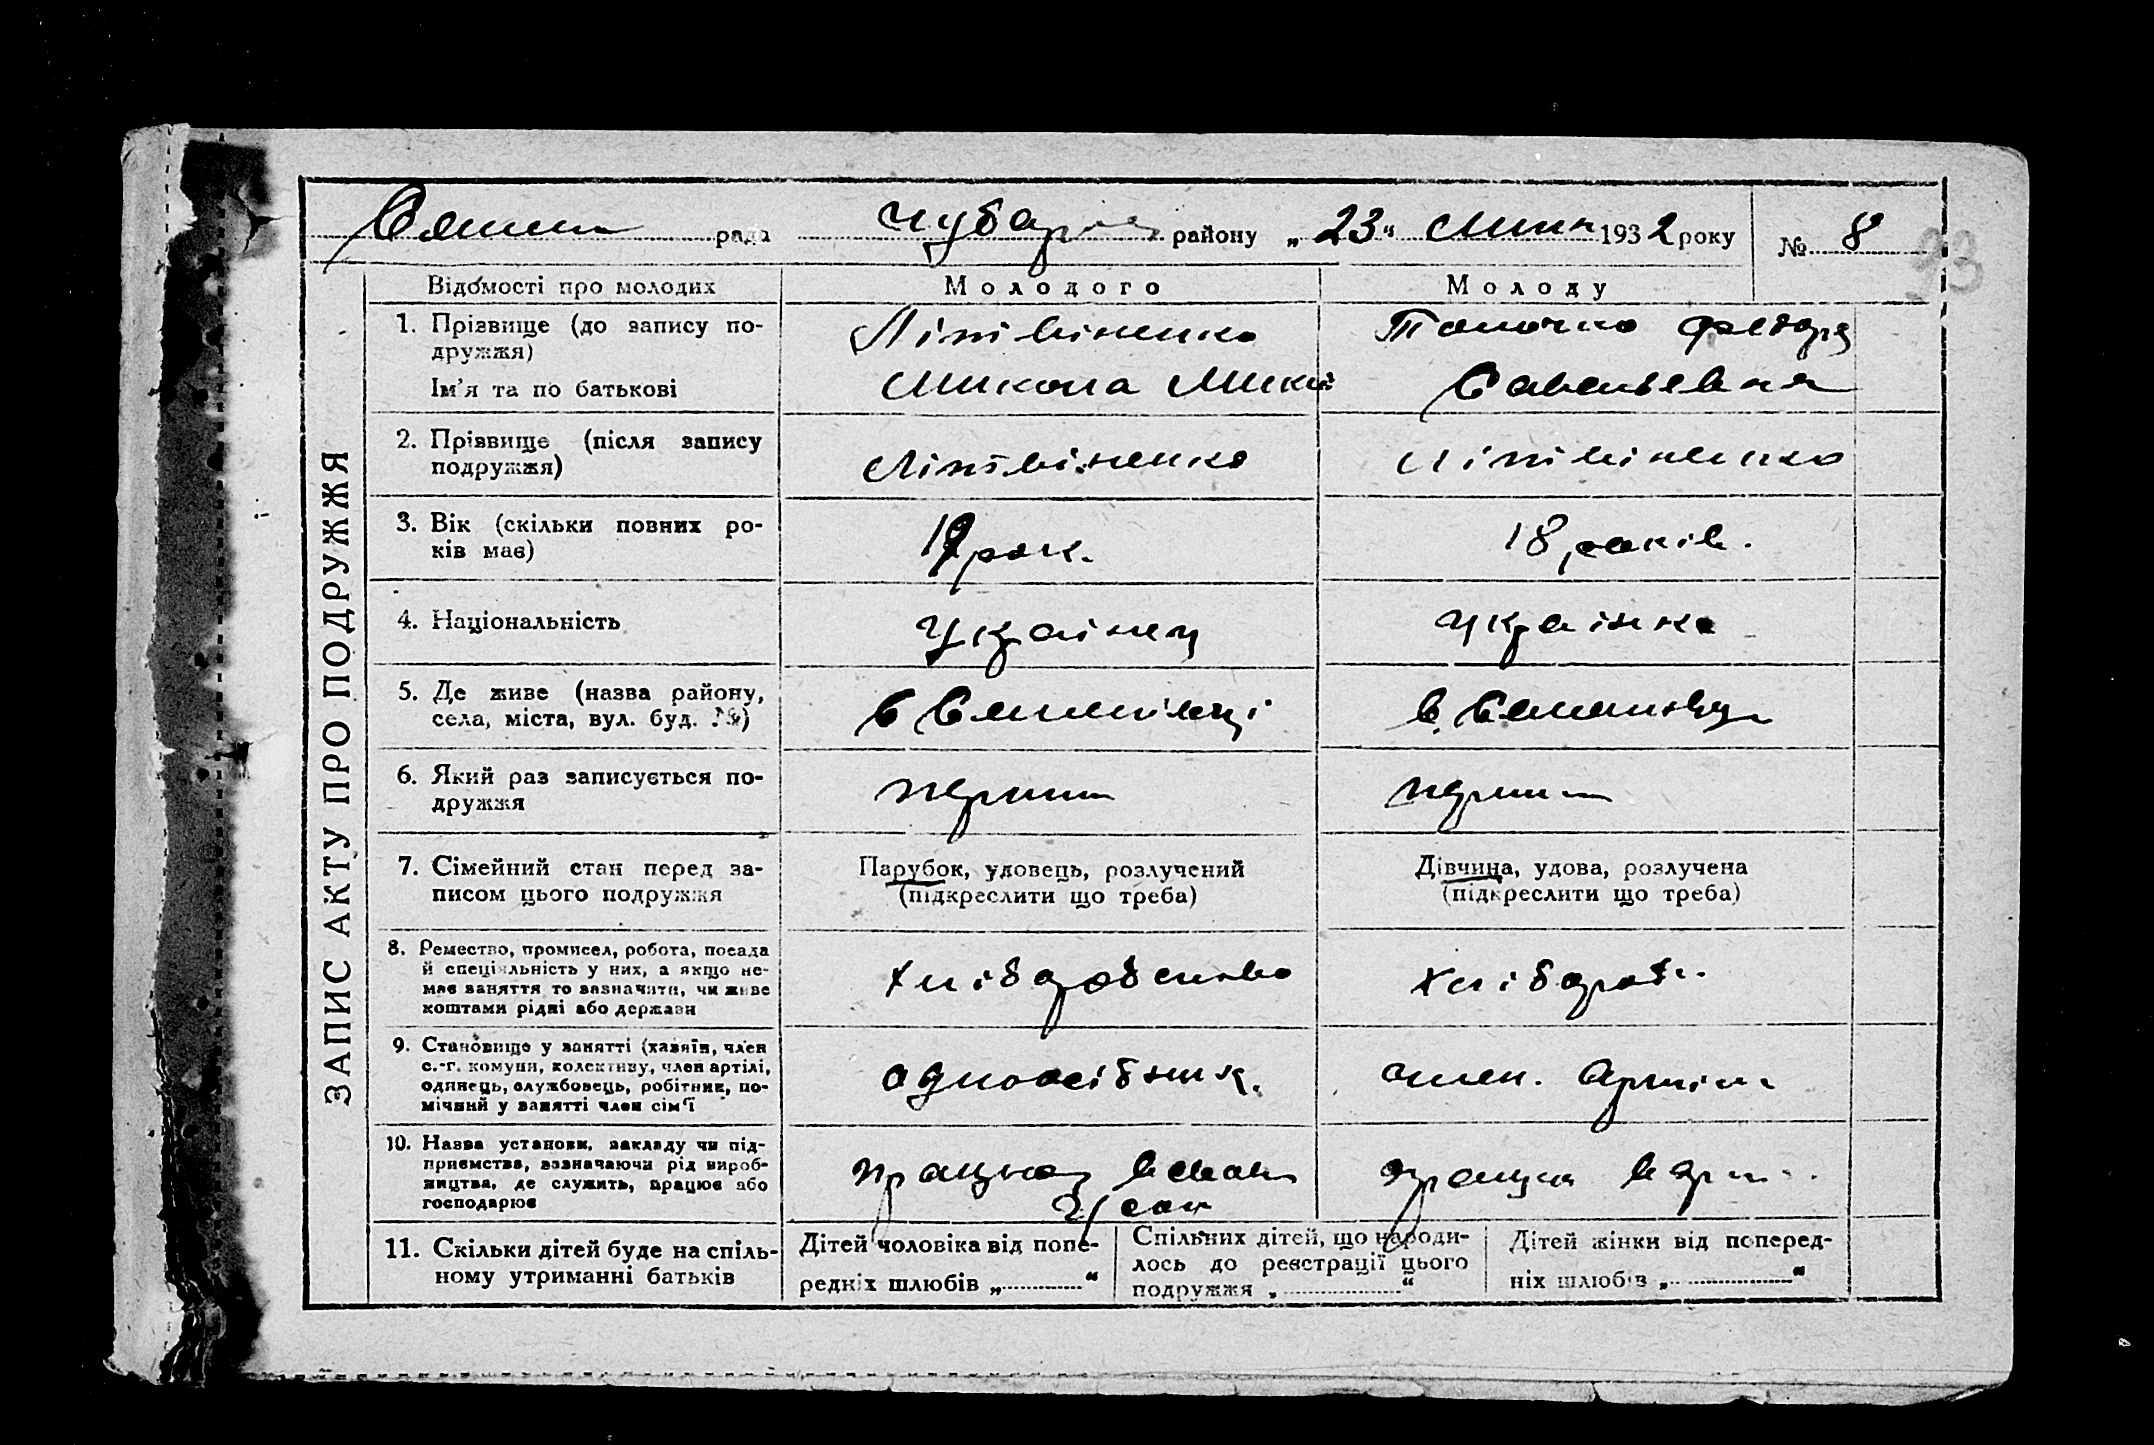 рада Чубар району „23" 1932 року № 8
93
ЗАПИС АКТУ ПРО ПОДРУЖЖЯ
Відомості про молодих Молодого Молоду
1. Прізвище (до запису по-
дружжя)
Літвіненко Федора
Ім'я та по батькові
Микола Савельевна
2. Прізвище (після запису
подружжя)
Літвіненко Літвіненко
3. Вік (скільки повних ро-
ків має)
19 рок. 18 років.
4. Національність
Украінец украінка
5. Де живе (назва району,
села, міста, вул. буд. №)
в в
6. Який раз записується по-
дружжя
перши перши
7. Сімейний стан перед за-
писом цього подружжя
Парубок, удовець, розлучений
(підкреслити що треба)
Дівчина, удова, розлучена
(підкреслити що треба)
8. Ремество, промисел, робота, посада
й спеціяльність у них, а якщо не-
має заняття то зазначити, чи живе
коштами рідні або держави
хліборобство хлібороб
9. Становище у занятті (хазяїн, член
с.-г. комуни, колективу, член артілі,
одинець, службовець, робітник, по-
мічний у занятті член сім'ї
одноосібник. член. Артіли
10. Назва установи, закладу чи під-
приємства, зазначаючи рід вироб-
ництва, де служить, працює або
господарює
працює в працює в
11. Скільки дітей буде на спіль-
ному утриманні батьків
Дітей чоловіка від попе-
редніх шлюбів „ "
Спільних дітей, що народи-
лось до реєстрації цього
подружжя „ "
Дітей жінки від поперед-
ніх шлюбів „ "